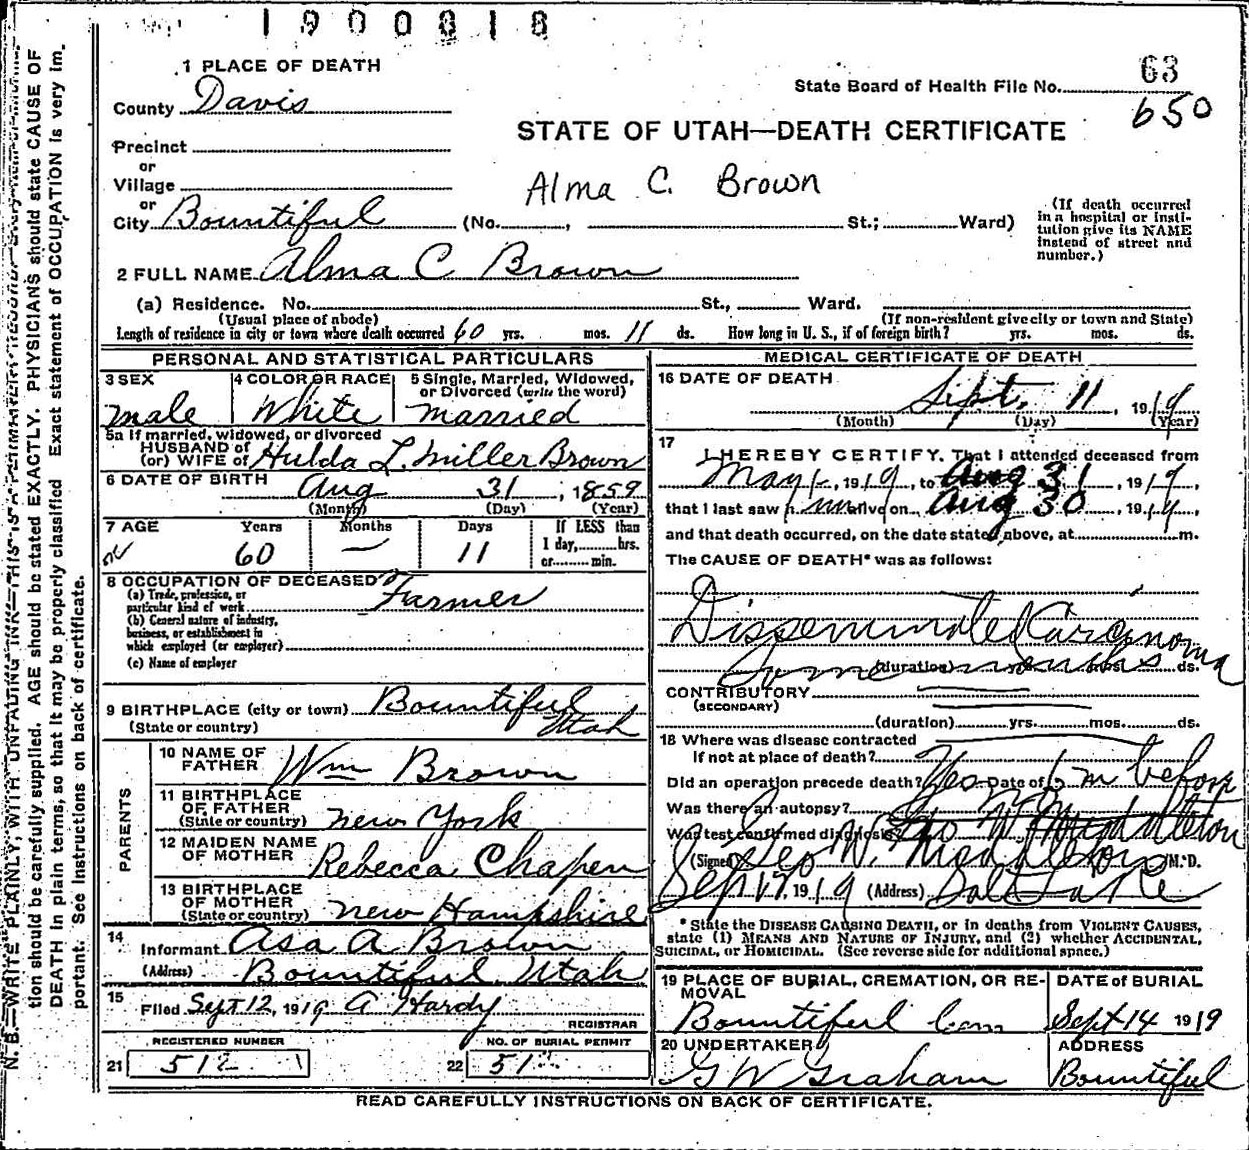 1900818
1 PLACE OF DEATH
63
State Board of Health File No.
650
County Davis
STATE OF UTAH—DEATH CERTIFICATE
Precinct
or
Village
Alma C. Brown
or
City Bountiful (No. , St.; Ward)
(If death occurred
in a hospital or insti-
tution give its NAME
instead of street and
number.)
2 FULL NAME Alma C Brown
(a) Residence. No. St., Ward.
(Usual place of abode) (If non-resident give city or town and State)
Length of residence in city or town where death occurred 60 yrs. mos. 11 ds. How long in U. S., if of foreign birth? yrs. mos. ds.
PERSONAL AND STATISTICAL PARTICULARS
3 SEX male
4 COLOR OR RACE White
5 Single, Married, Widowed,
or Divorced (write the word)
married
5a If married, widowed, or divorced
HUSBAND of
(or) WIFE of Hulda L. Miller Brown
6 DATE OF BIRTH Aug 31, 1859
(Month) (Day) (Year)
7 AGE Years Months Days If LESS than
60 — 11 1 day, hrs.
or min.
8 OCCUPATION OF DECEASED
(a) Trade, profession, or
particular kind of work Farmer
(b) General nature of industry,
business, or establishment in
which employed (or employer)
(c) Name of employer
9 BIRTHPLACE (city or town) Bountiful
(State or country) Utah
PARENTS
10 NAME OF
FATHER Wm Brown
11 BIRTHPLACE
OF FATHER
(State or country) New York
12 MAIDEN NAME
OF MOTHER Rebecca Chapen
13 BIRTHPLACE
OF MOTHER
(State or country) New Hampshire
14
Informant Asa A Brown
(Address) Bountiful, Utah
15
Filed Sept 12, 1919 A Hardy
REGISTRAR
REGISTERED NUMBER NO. OF BURIAL PERMIT
21 512 22 51
MEDICAL CERTIFICATE OF DEATH
16 DATE OF DEATH
Sept. 11, 1919
(Month) (Day) (Year)
17
I HEREBY CERTIFY, That I attended deceased from
May 1, 1919, to Aug 31, 1919,
that I last saw him alive on Aug 30, 1919,
and that death occurred, on the date stated above, at m.
The CAUSE OF DEATH* was as follows:
Disseminated Carcinoma
Some months
(duration) yrs. mos. ds.
CONTRIBUTORY
(SECONDARY)
(duration) yrs. mos. ds.
18 Where was disease contracted
If not at place of death?
Did an operation precede death? Yes Date of 6 m before
Was there an autopsy?
What test confirmed diagnosis? Geo W Middleton
(Signed) Geo W. Middleton M. D.
Sep 17, 1919 (Address) Salt Lake
*State the DISEASE CAUSING DEATH, or in deaths from VIOLENT CAUSES,
state (1) MEANS AND NATURE OF INJURY, and (2) whether ACCIDENTAL,
SUICIDAL, or HOMICIDAL. (See reverse side for additional space.)
19 PLACE OF BURIAL, CREMATION, OR RE-
MOVAL
Bountiful Cem
DATE of BURIAL
Sept 14 1919
20 UNDERTAKER
G W Graham
ADDRESS
Bountiful
READ CAREFULLY INSTRUCTIONS ON BACK OF CERTIFICATE.
N. B.—WRITE PLAINLY, WITH UNFADING INK—THIS IS A PERMANENT RECORD. Every item of informa-
tion should be carefully supplied. AGE should be stated EXACTLY. PHYSICIANS should state CAUSE OF
DEATH in plain terms, so that it may be properly classified. Exact statement of OCCUPATION is very im-
portant. See instructions on back of certificate.